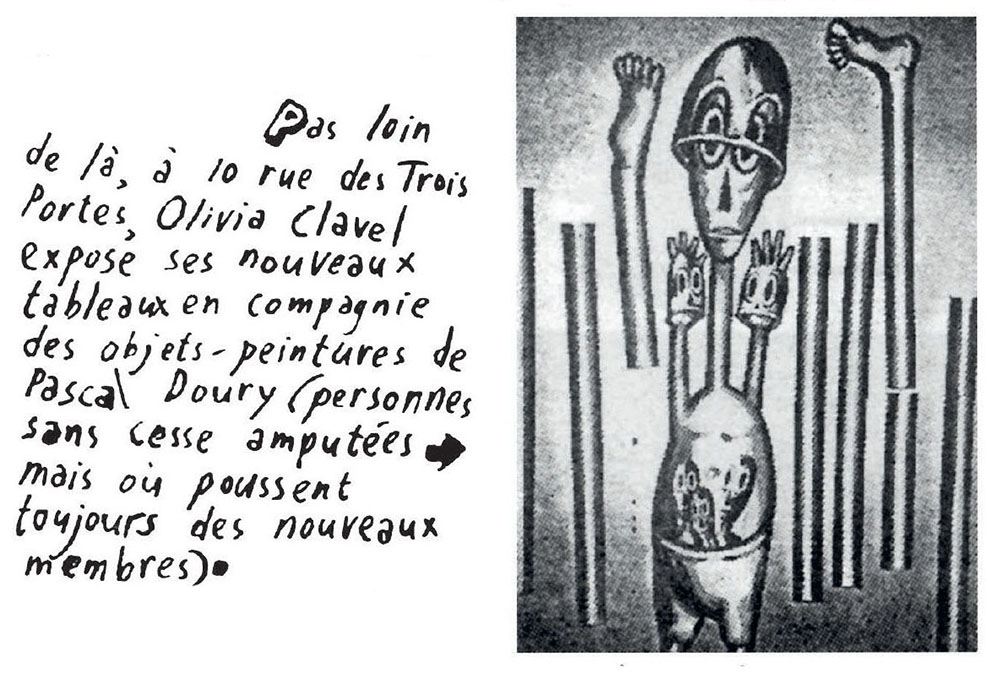 Pas loin
de là, à 10 rue des Trois
Portes, Olivia Clavel
expose ses nouveaux
tableaux en compagnie
des objets-peintures de
Pascal Doury (personnes
sans cesse amputées ➡
mais où poussent
toujours des nouveaux
membres).